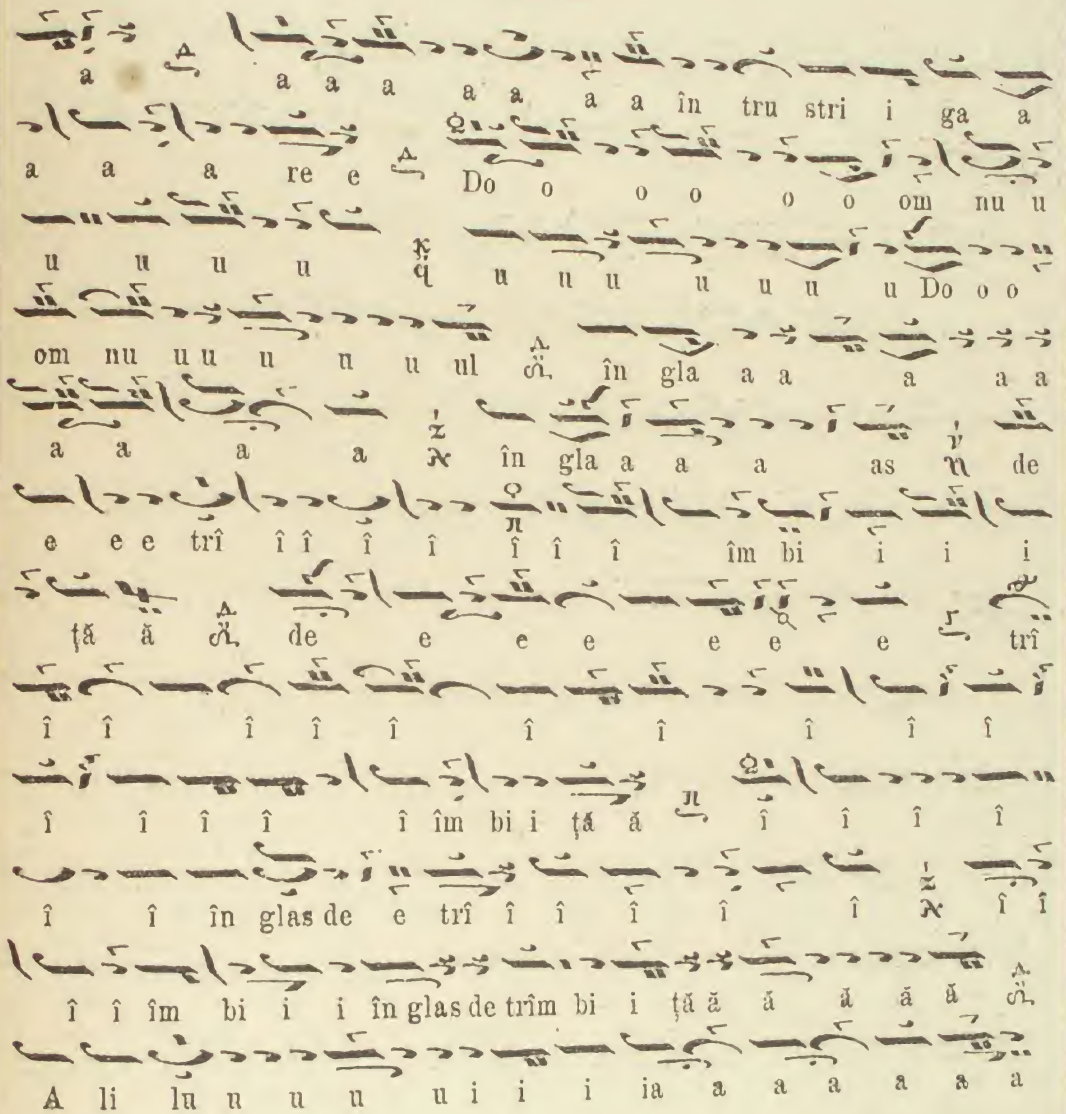 a a a a a a a a în tru stri i ga a
a a a re e Do o o o o o om nu u
u u u u u u u u u u u Do o o
om nu u u u u u ul în gla a a a a a
a a a a în gla a a a as de
e e e trî î î î î î î î îm bi i i i
ţă ă de e e e e e e trî
î î î î î î î î î î
î î î î î îm bi i ţă ă î î î î
î î în glas de e trî î î î î î î î
î î îm bi i i în glas de trîm bi i ţă ă ă ă ă ă
A li lu u u u u i i i ia a a a a a